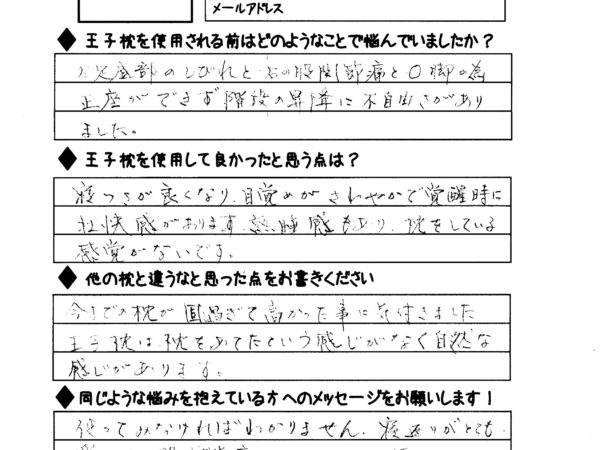 メールアドレス
◆ 王子枕を使用される前はどのようなことで悩んでいましたか？
足底部のしびれと右の股関節痛とO脚の為
正座ができず階段の昇降に不自由さがあり
ました。
◆ 王子枕を使用して良かったと思う点は？
寝つきが良くなり、目覚めがさわやかで覚醒時に
壮快感があります。熟睡感もあり、枕をしている
感覚がないです。
◆ 他の枕と違うなと思った点をお書きください
今までの枕が固過ぎて高かった事に気付きました
王子枕は枕をあてたという感じがなく自然な
感じがあります。
◆ 同じような悩みを抱えている方へのメッセージをお願いします！
使ってみなければわかりません。寝返りがとても